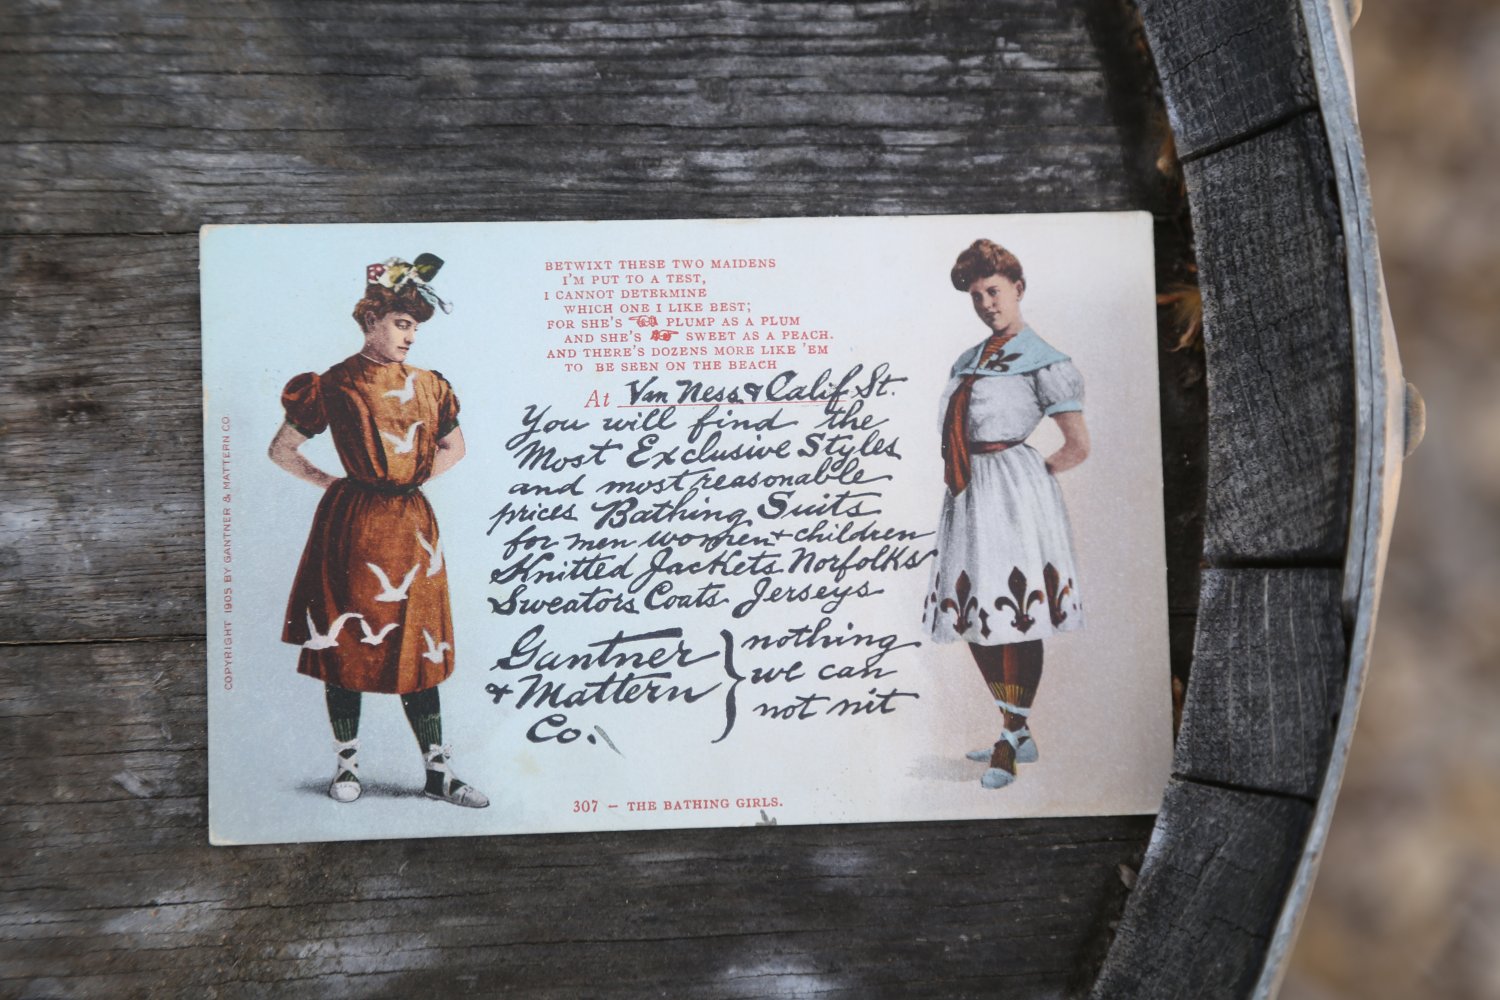 BETWIXT THESE TWO MAIDENS
I'M PUT TO A TEST,
I CANNOT DETERMINE
WHICH ONE I LIKE BEST;
FOR SHE'S PLUMP AS A PLUM
AND SHE'S SWEET AS A PEACH.
AND THERE'S DOZENS MORE LIKE 'EM
TO BE SEEN ON THE BEACH
At Van Ness & Calif St.
You will find the
Most Exclusive Styles
and most reasonable
prices Bathing Suits
for men women + children
Knitted Jackets Norfolks
Sweators Coats Jerseys
Gantner
& Mattern
Co.
nothing
we can
not nit
307 – THE BATHING GIRLS.
COPYRIGHT 1905 BY GANTNER & MATTERN CO.